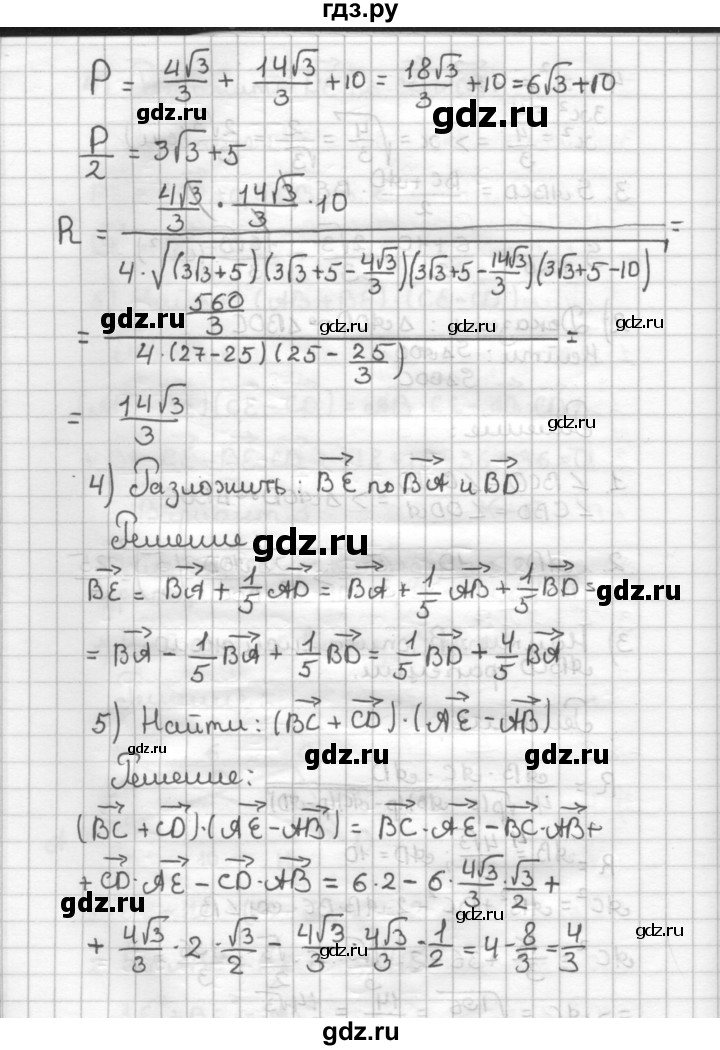 гдз.ру
P = 4√3/3 + 14√3/3 + 10 = 18√3/3 + 10 = 6√3 + 10
gdz.ru gdz.ru
P/2 = 3√3 + 5
R = (4√3/3 · 14√3/3 · 10) / (4·√((3√3+5)(3√3+5−4√3/3)(3√3+5−14√3/3)(3√3+5−10))) =
gdz.ru gdz.ru gdz.ru
= (560/3) / (4·(27−25)(25−25/3)) =
= 14√3/3
gdz.ru
4) Разложить: BE по BA и BD
Решение
gdz.ru
BE = BA + 1/5 AD = BA + 1/5 AB + 1/5 BD =
gdz.ru
= BA − 1/5 BA + 1/5 BD = 1/5 BD + 4/5 BA
5) Найти: (BC + CD)·(AE − AB)
gdz.ru gdz.ru gdz.ru
Решение:
(BC + CD)·(AE − AB) = BC·AE − BC·AB +
+ CD·AE − CD·AB = 6·2 − 6·4√3/3·√3/2 +
gdz.ru gdz.ru
+ 4√3/3 · 2 · √3/2 − 4√3/3 · 4√3/3 · 1/2 = 4 − 8/3 = 4/3
gdz.ru gdz.ru
gdz.ru